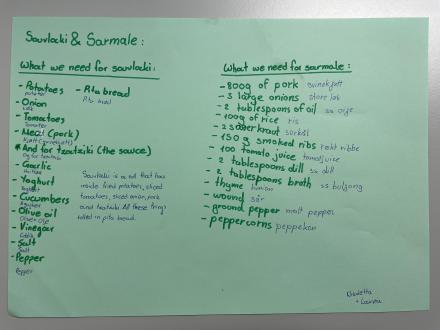 Souvlacki & Sarmale :
What we need for souvlacki :
- Potatoes
poteter
- Pita bread
Pita brød
- Onion
Løk
- Tomatoes
Tomater
- Meat (pork)
Kjøtt (svinekjøtt)
* And for tzatziki (the sauce)
Og for tzatziki
- Gaarlic
- Yoghurt
- Cucumbers
Agurker
- Olive oil
Oliven olje
- Vinegar
Eddik
- Salt
Salt
- Pepper
Pepper
Souvlacki is a roll that has
inside fried potatoes, sliced
tomatoes, sliced onion, pork
and tzatziki. All these things
rolled in pita bread.
What we need for sarmale :
- 800g of pork svinekjøtt
- 3 large onions store løk
- 2 tablespoons of oil ss olje
- 100g of rice ris
- 2 sauerkraut surkål
- 150 g smoked ribs røkt ribbe
- 100 tomato juice tomatjuice
- 2 tablespoons dill ss dill
- 2 tablespoons broth ss buljong
- thyme timian
- wound sår
- ground pepper malt pepper
- peppercorns pepperkorn
Nicoletta